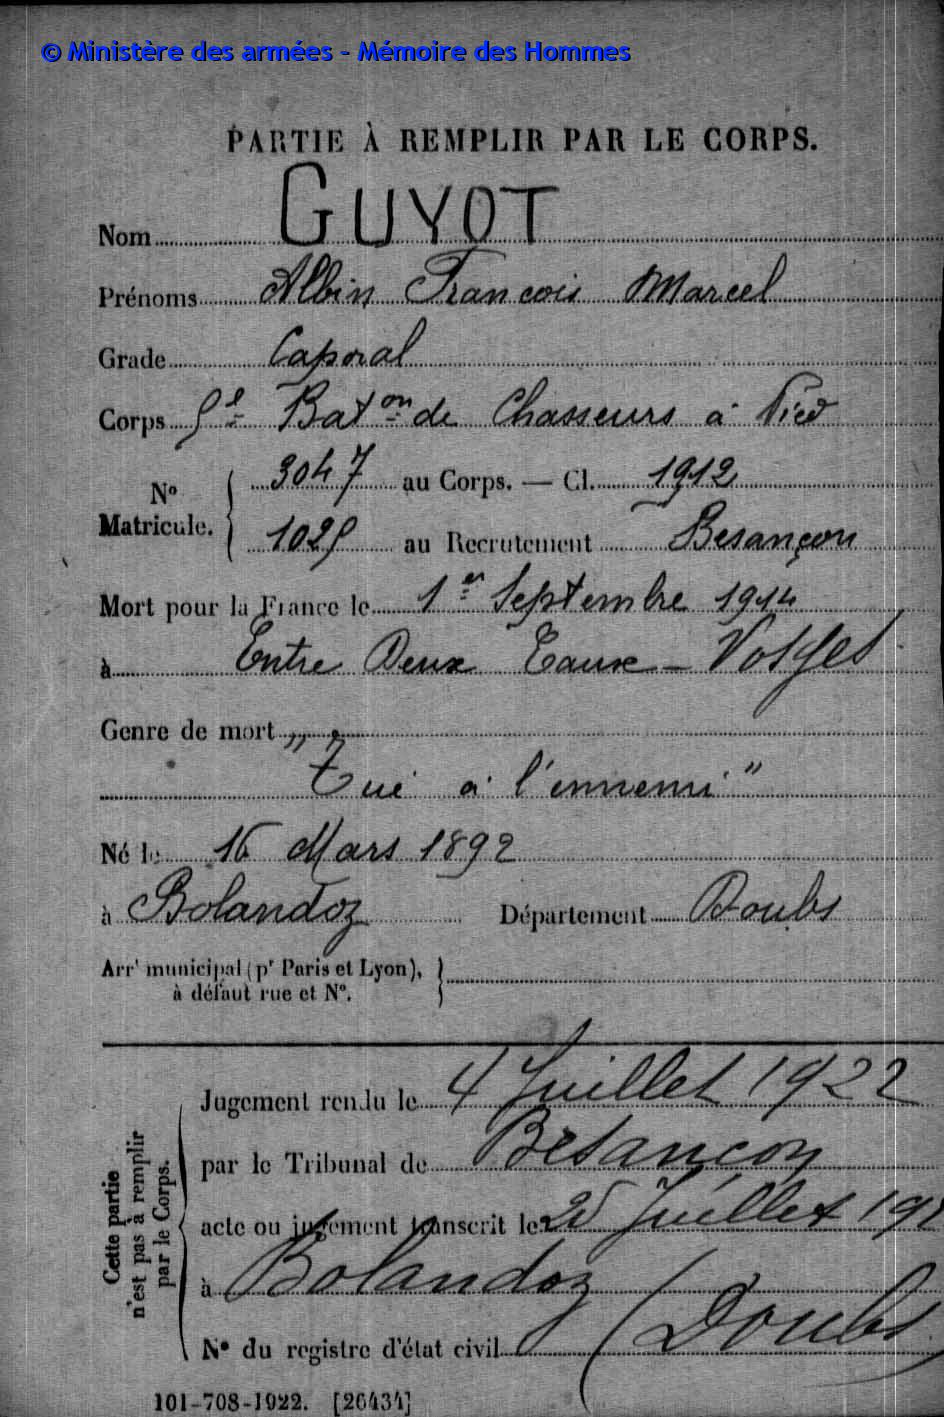 © Ministère des armées - Mémoire des Hommes
PARTIE À REMPLIR PAR LE CORPS.
Nom GUYOT
Prénoms Albin Francois Marcel
Grade Caporal
Corps 5e Baton de Chasseurs à Pied
No Matricule. { 3047 au Corps. — Cl. 1912
1025 au Recrutement Besançon
Mort pour la France le 1er Septembre 1914
à Entre Deux Eaux - Vosges
Genre de mort „ „
Tué à l'ennemi"
Né le 16 Mars 1892
à Bolandoz Département Doubs
Arrt municipal (pr Paris et Lyon), }
à défaut rue et No.
Cette partie
n'est pas à remplir
par le Corps.
Jugement rendu le 4 Juillet 1922
par le Tribunal de Besançon
acte ou jugement transcrit le Juillet 192
à Bolandoz (Doubs
No du registre d'état civil
101-708-1922. [26434]